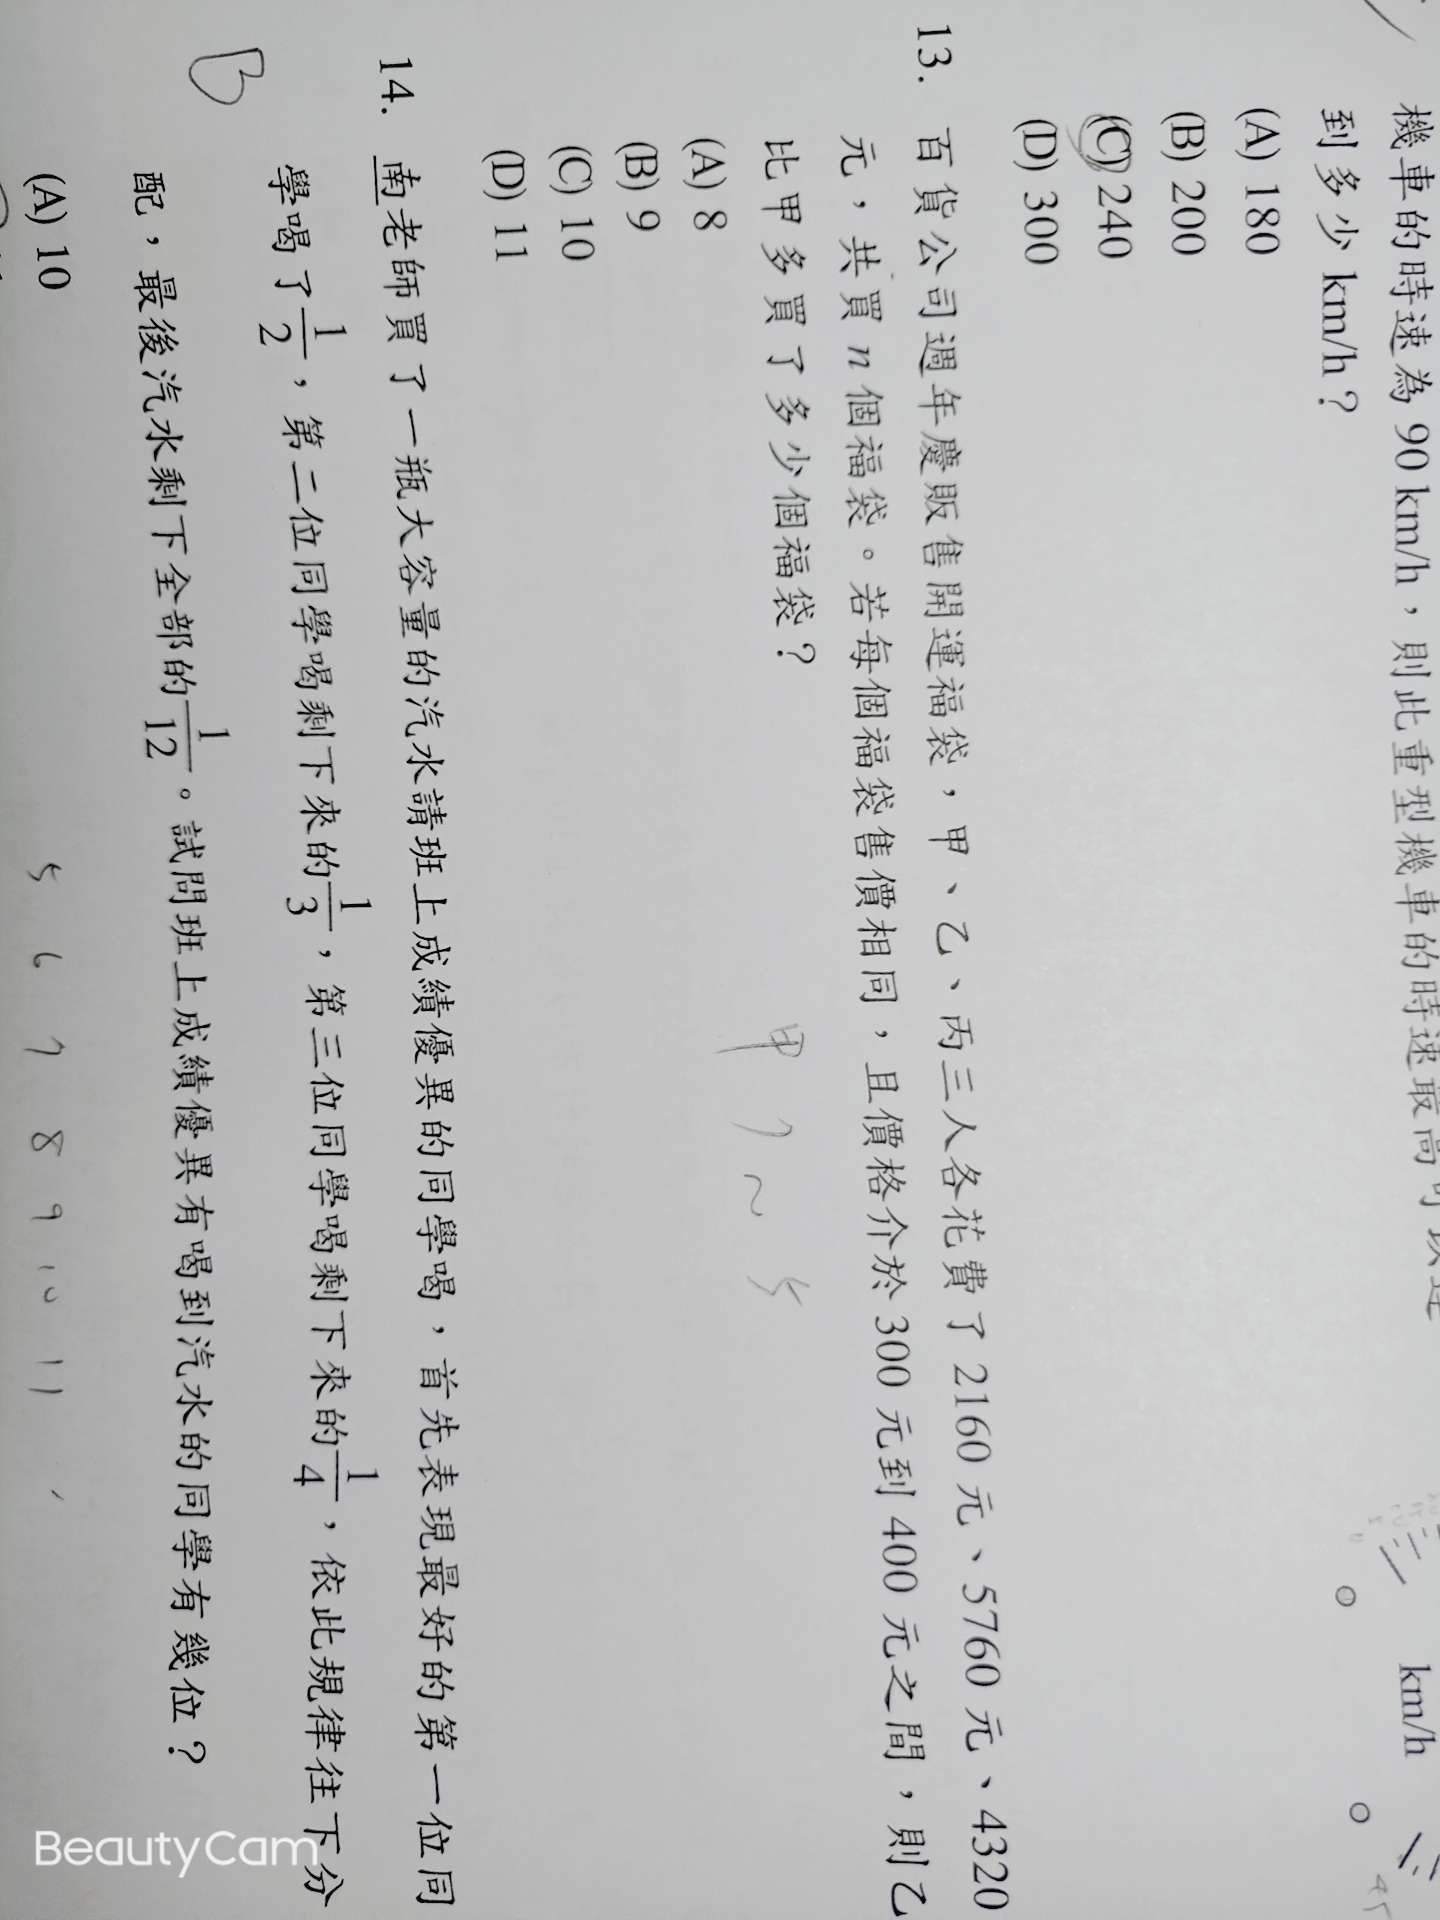 機車的時速為 90 km/h，則此重型機車的時速最高可以達
到多少 km/h？
(A) 180
(B) 200
(C) 240
(D) 300
km/h
13. 百貨公司週年慶販售開運福袋，甲、乙、丙三人各花費了 2160 元、5760 元、4320
元，共買 n 個福袋。若每個福袋售價相同，且價格介於 300 元到 400 元之間，則乙
比甲多買了多少個福袋？
(A) 8
(B) 9
(C) 10
(D) 11
甲 7 ~ 5
14. 南老師買了一瓶大容量的汽水請班上成績優異的同學喝，首先表現最好的第一位同
B
學喝了1/2，第二位同學喝剩下來的1/3，第三位同學喝剩下來的1/4，依此規律往下分
配，最後汽水剩下全部的1/12。試問班上成績優異有喝到汽水的同學有幾位？
(A) 10
5 6 7 8 9 10 11
BeautyCam